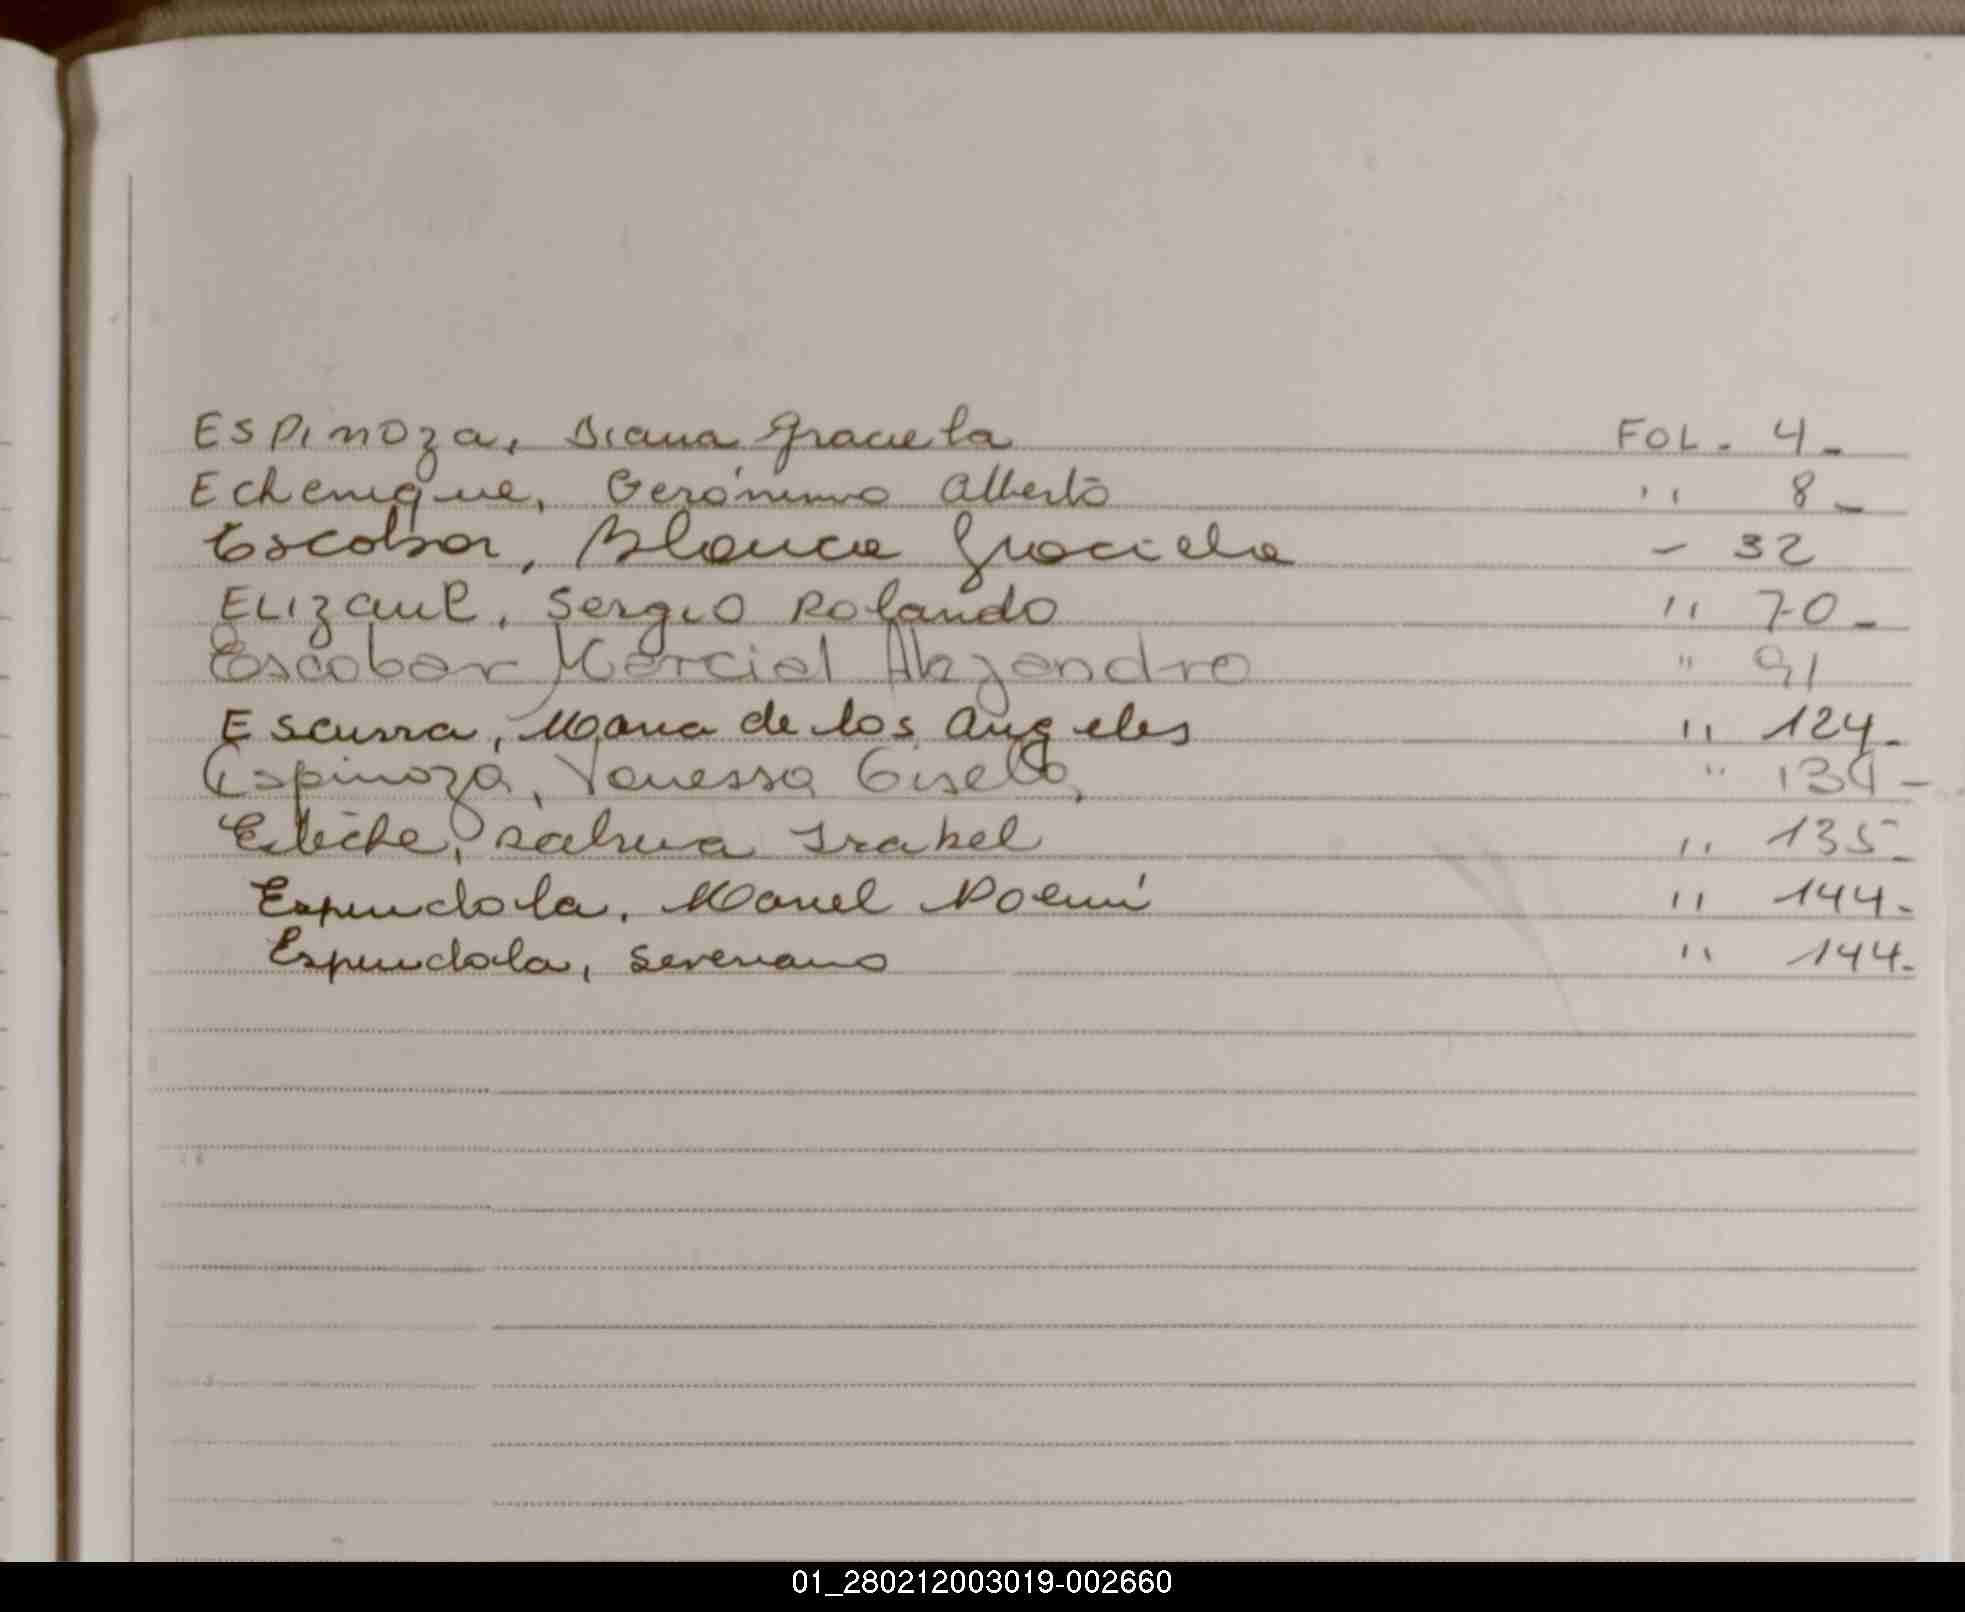 ESPINOZA, Diana Graciela FOL. 4-
Echenique, Gerónimo Alberto '' 8-
Escobar, Blanca Graciela - 32
Sergio Rolando '' 70-
Escobar Marcial Alejandro '' 91
Escurra, Maria de los Angeles '' 124-
Espinoza, Vanessa Gisela, '' 134-
Isabel '' 135-
Espindola, Noemí '' 144-
Espindola, Severiano '' 144-
01_280212003019-002660